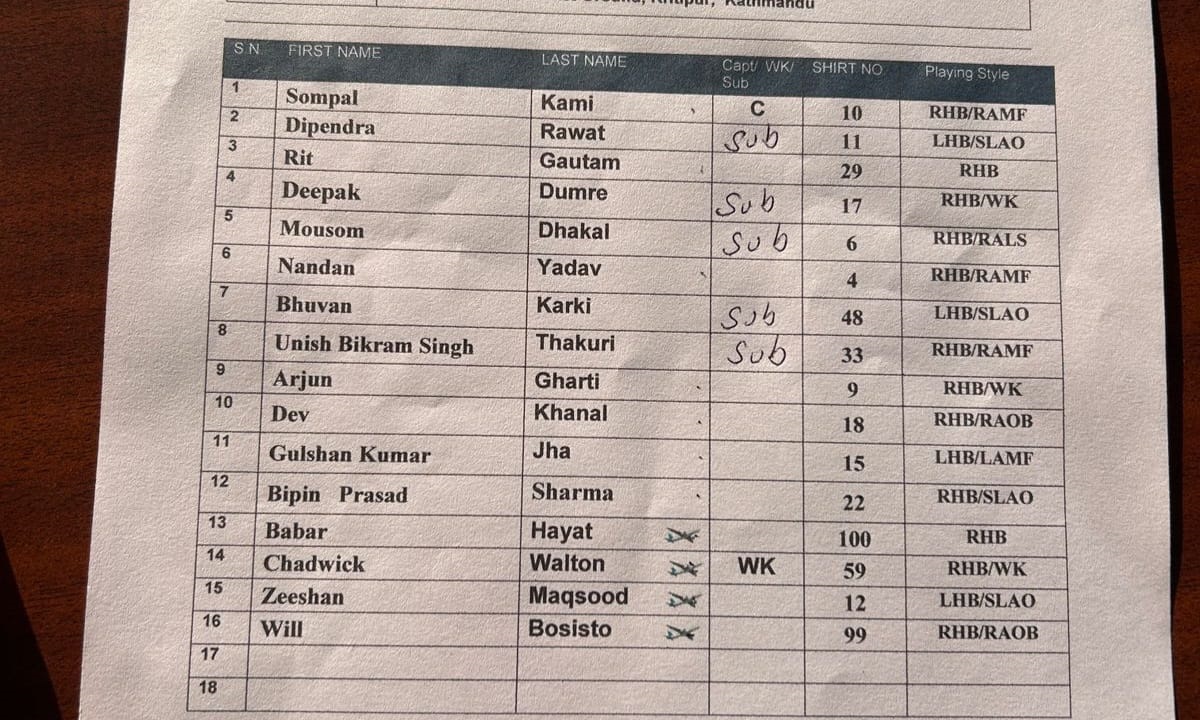 Kathmandu
S N. FIRST NAME LAST NAME Capt/ WK/ Sub SHIRT NO Playing Style
1 Sompal Kami C 10 RHB/RAMF
2 Dipendra Rawat Sub 11 LHB/SLAO
3 Rit Gautam 29 RHB
4 Deepak Dumre Sub 17 RHB/WK
5 Mousom Dhakal Sub 6 RHB/RALS
6 Nandan Yadav 4 RHB/RAMF
7 Bhuvan Karki Sub 48 LHB/SLAO
8 Unish Bikram Singh Thakuri Sub 33 RHB/RAMF
9 Arjun Gharti 9 RHB/WK
10 Dev Khanal 18 RHB/RAOB
11 Gulshan Kumar Jha 15 LHB/LAMF
12 Bipin Prasad Sharma 22 RHB/SLAO
13 Babar Hayat 100 RHB
14 Chadwick Walton WK 59 RHB/WK
15 Zeeshan Maqsood 12 LHB/SLAO
16 Will Bosisto 99 RHB/RAOB
17
18